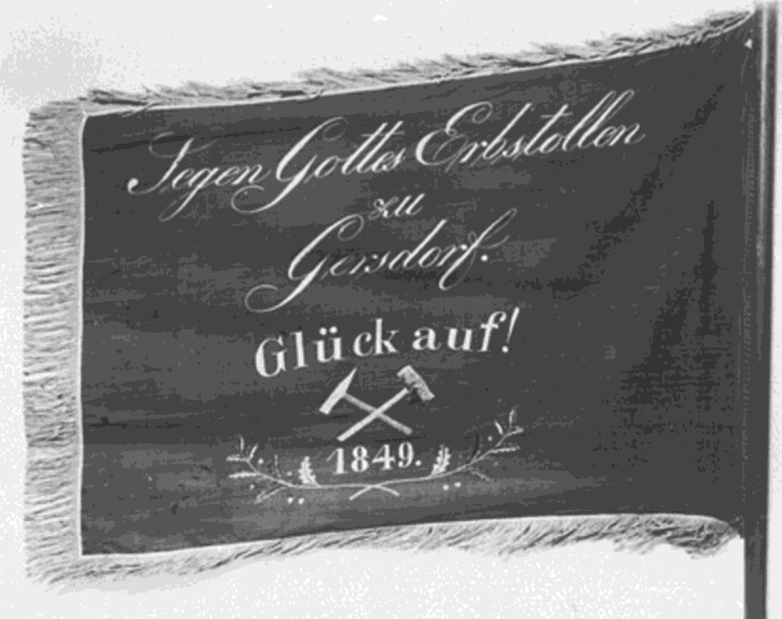 Segen Gottes Erbstollen
zu
Gersdorf.
Glück auf!
1849.